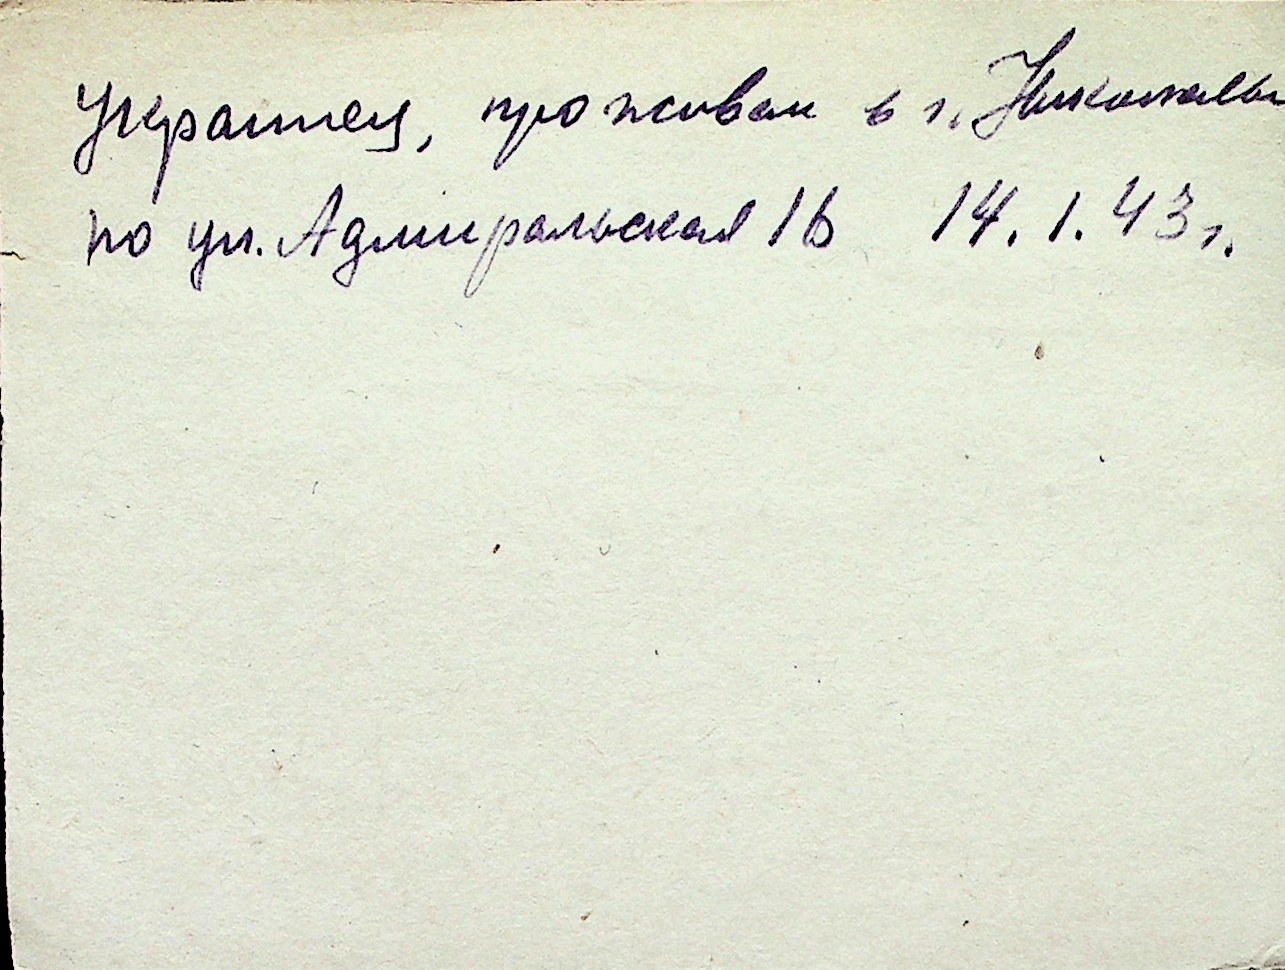 Украинец, проживал в г. Николаеве
по ул. Адмиральская 16 14.1.43 г.